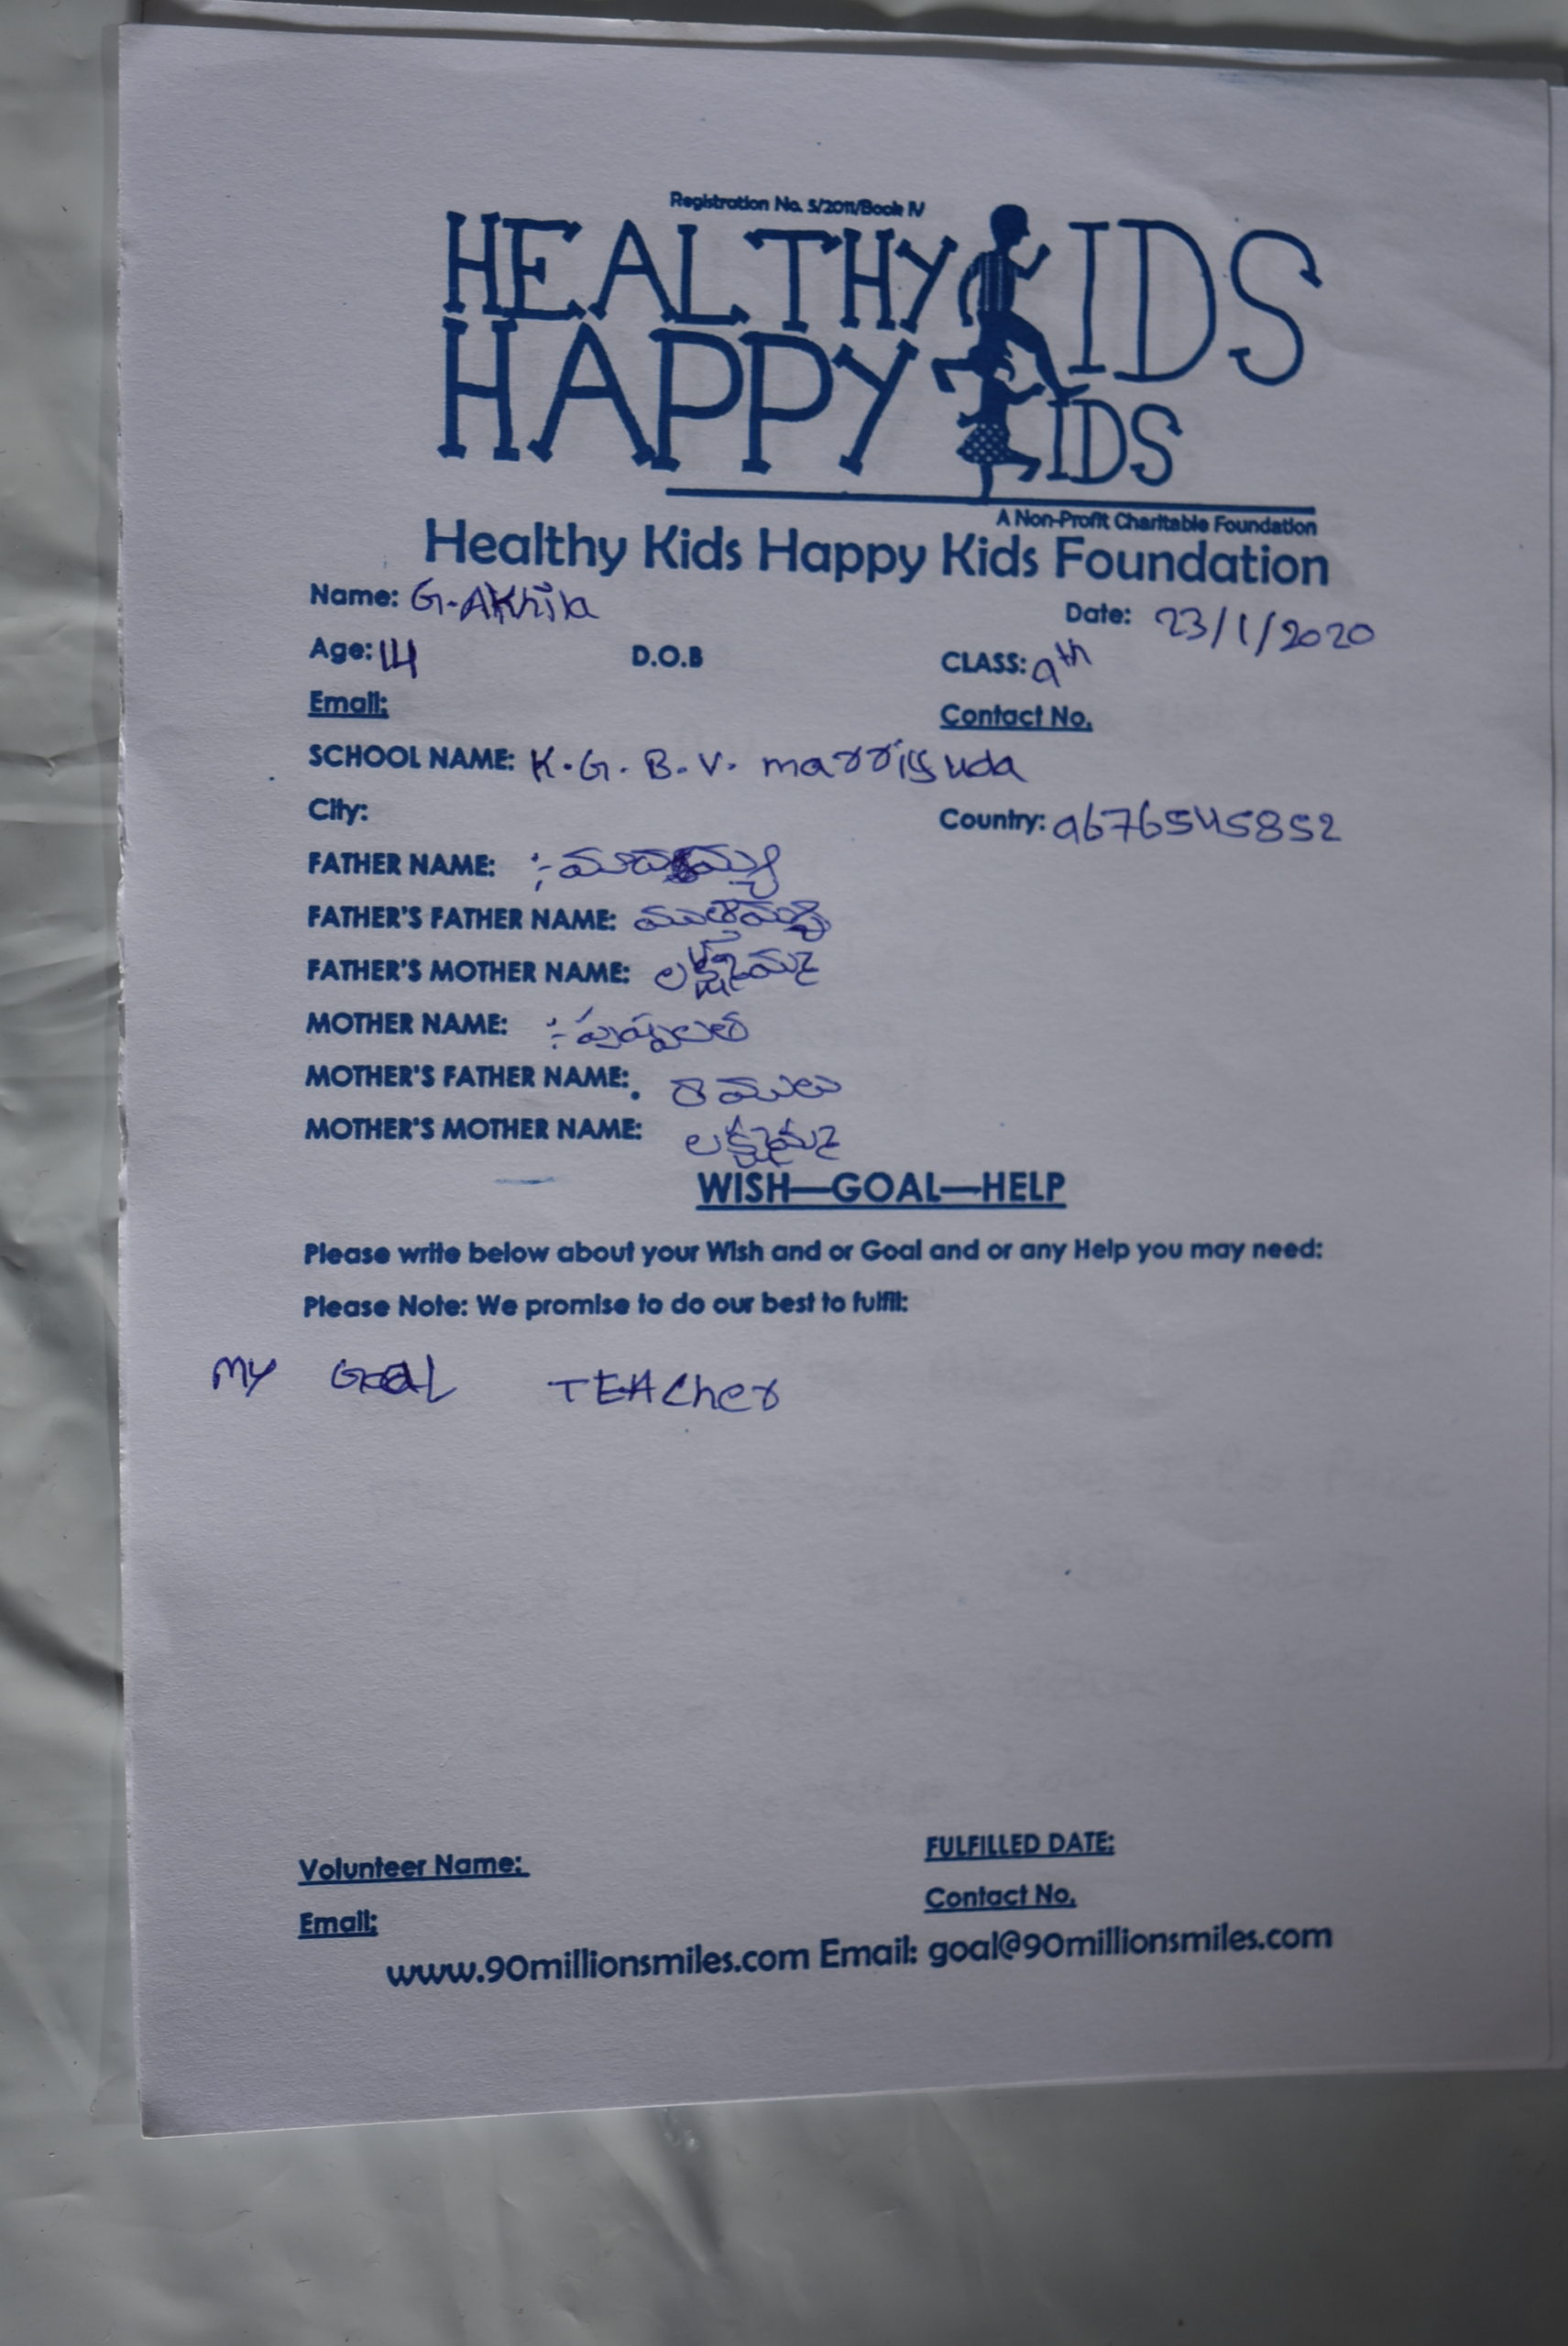 Registration No. 5/2011/Book IV
HEALTHY KIDS
HAPPY KIDS
A Non-Profit Charitable Foundation
Healthy Kids Happy Kids Foundation
Name: G. Akhila Date: 23/1/2020
Age: 14 D.O.B CLASS: 9th
Email: Contact No.
SCHOOL NAME: K.G.B.V. marriguda
City: Country: 9676545852
FATHER NAME:
FATHER'S FATHER NAME:
FATHER'S MOTHER NAME: లక్ష్మమ్మ
MOTHER NAME: :- పుష్పలత
MOTHER'S FATHER NAME: రాములు
MOTHER'S MOTHER NAME: లక్ష్మమ్మ
WISH—GOAL—HELP
Please write below about your Wish and or Goal and or any Help you may need:
Please Note: We promise to do our best to fulfil:
MY GOAL TEACher
FULFILLED DATE:
Volunteer Name:
Contact No.
Email:
www.90millionsmiles.com Email: goal@90millionsmiles.com